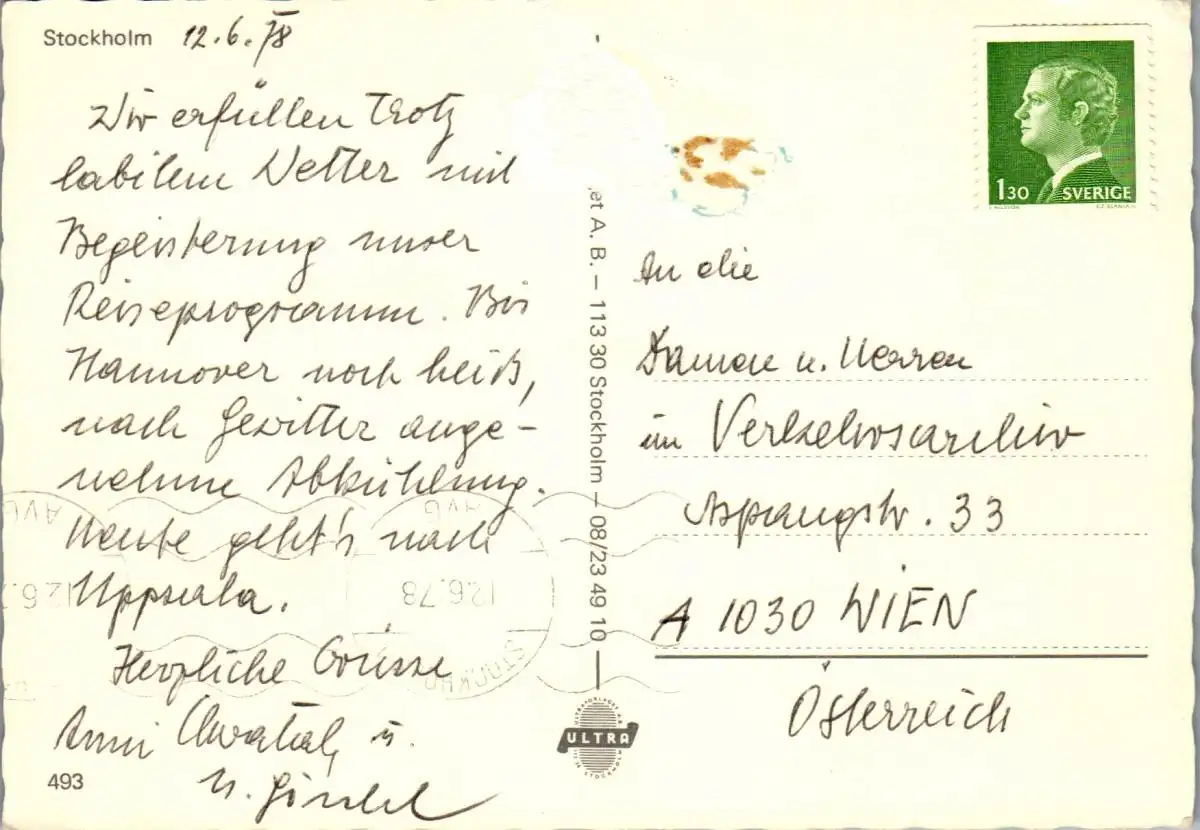 Stockholm 12.6.78
Wir erfüllen trotz
labilem Wetter mit
Begeisterung unser
Reiseprogramm. Bis
Hannover noch heiß,
nach Gewitter ange-
nehme Abkühlung.
Heute geht's nach
Uppsala.
Herzliche Grüsse
Anni u.
493
et A.B. – 113 30 Stockholm – 08/23 49 10
ULTRA
12.6.78
STOCKHO
AVG
1 30 SVERIGE
An die
Damen u. Herren
im Verkehrsarchiv
Aspangstr. 33
A 1030 WIEN
Österreich